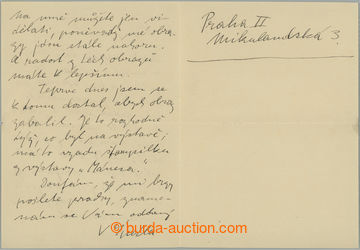 Na mně můžete jen vy-
dělati, poněvadž mé obra-
zy jsou stále nahoru.
A radost z těch obrazů
máte k lepšímu.
Teprve dnes jsem se
k tomu dostal, abych obraz
zabalil. Je to rozhodně
lepší, co byl na výstavě;
má to vzadu štampilku
z výstavy "Mánesa."
Doufám, že mi brzy
pošlete prachy, zname-
nám se Vám oddaný
V
Praha II
Mikulandská 3.
burda-auction.com